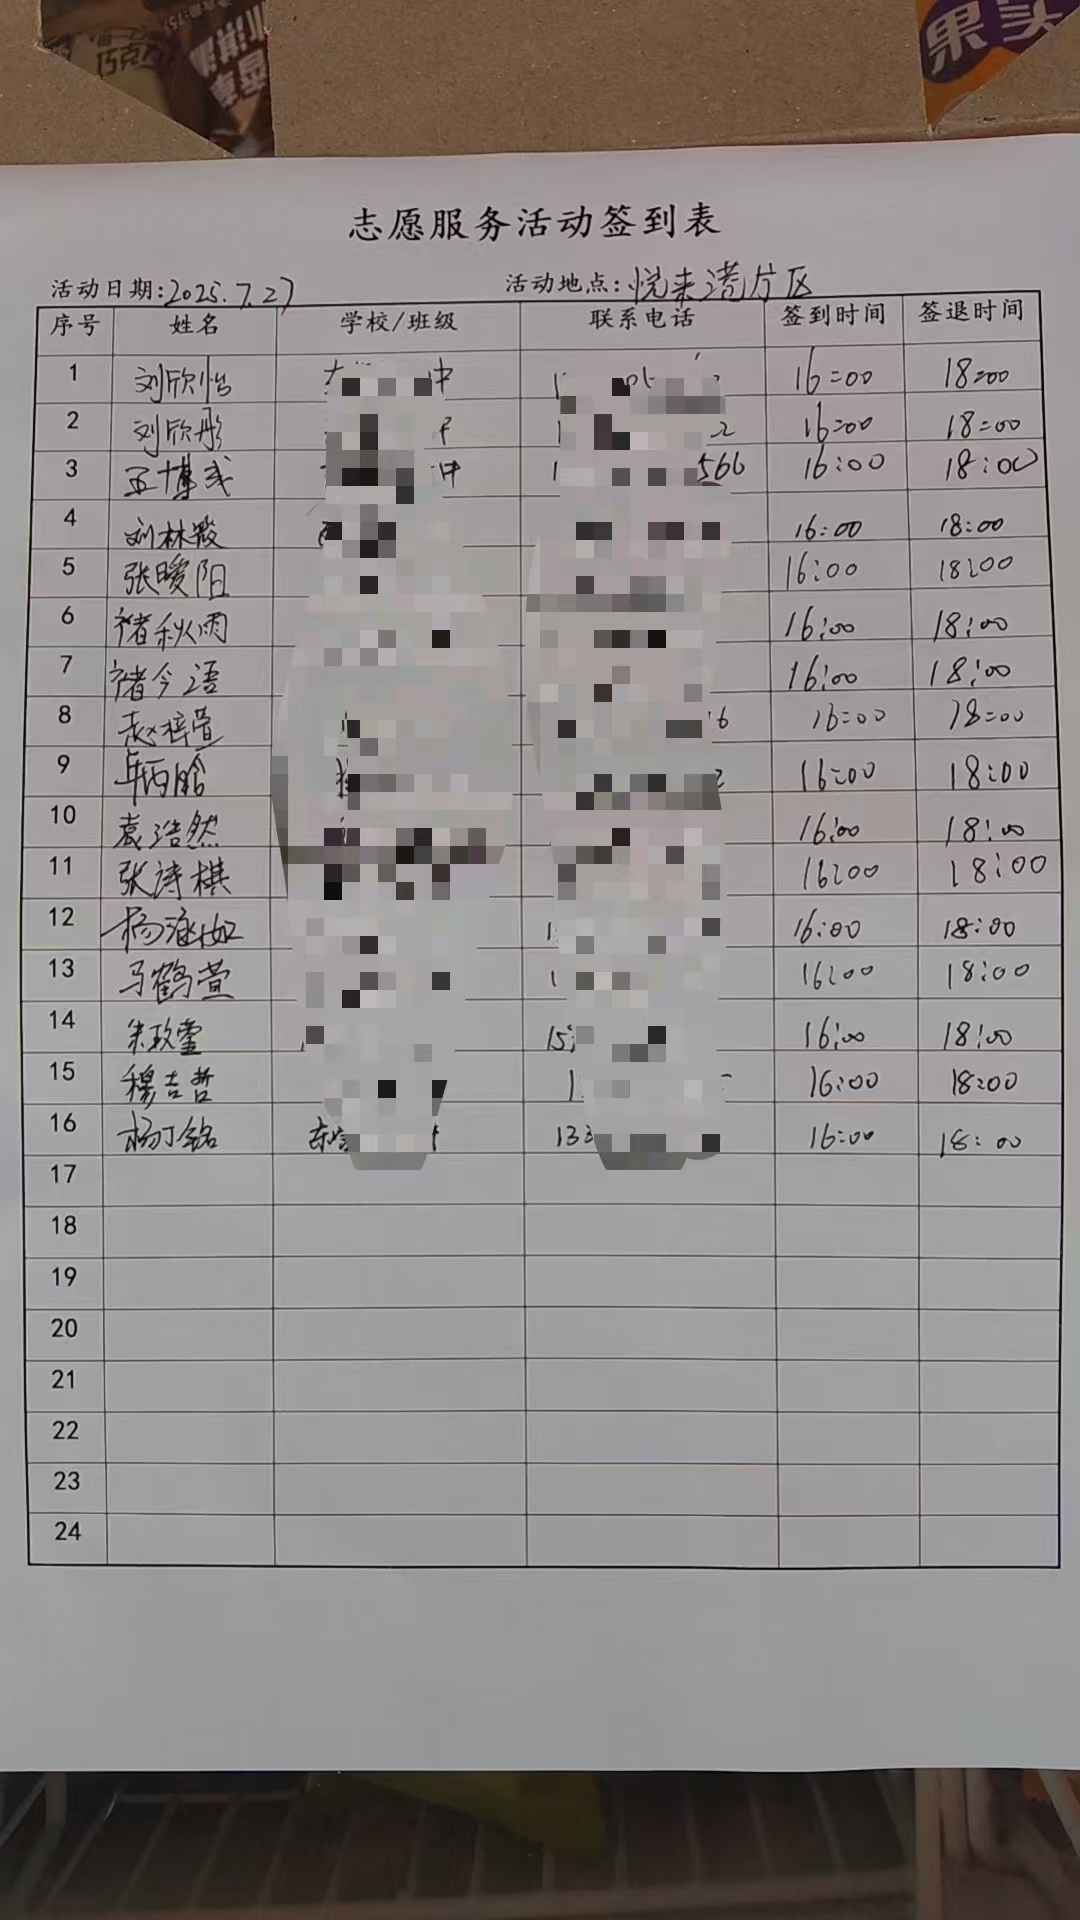 巧克
果实
志愿服务活动签到表
活动日期:2025.7.27 活动地点:悦来湾片区
序号 姓名 学校/班级 联系电话 签到时间 签退时间
1 刘欣怡 中 16:00 18:00
2 刘欣彤 16:00 18:00
3 博 中 566 16:00 18:00
4 刘林 16:00 18:00
5 张暖阳 16:00 18:00
6 褚秋雨 16:00 18:00
7 褚今语 16:00 18:00
8 赵梓萱 16 16:00 18:00
9 16:00 18:00
10 袁浩然 16:00 18:00
11 张诗棋 16:00 18:00
12 杨 16:00 18:00
13 马鹤萱 16:00 18:00
14 朱玫 15 16:00 18:00
15 穆吉哲 16:00 18:00
16 杨丁铭 133 16:00 18:00
17
18
19
20
21
22
23
24